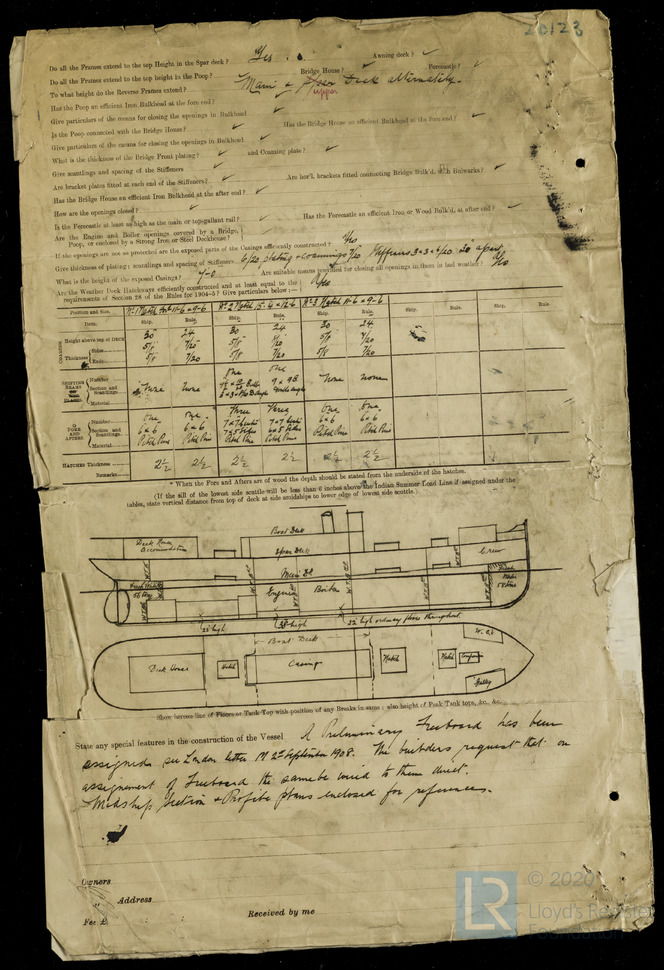 20123
Do all the Frames extend to the top Height in the Spar deck? Yes Awning deck? ✓
Do all the Frames extend to the top height in the Poop? ✓ Bridge House? ✓ Forecastle? ✓
To what height do the Reverse Frames extend? Main & Spar Deck alternately.
upper
Has the Poop an efficient Iron Bulkhead at the fore end? ✓
Give particulars of the means for closing the openings in Bulkhead ✓
Is the Poop connected with the Bridge House? ✓ Has the Bridge House an efficient Bulkhead at the fore end? ✓
Give particulars of the means for closing the openings in Bulkhead ✓
What is the thickness of the Bridge Front plating? ✓ and Coaming plate? ✓
Give scantlings and spacing of the Stiffeners ✓
Are bracket plates fitted at each end of the Stiffeners? ✓ Are hor'l. brackets fitted connecting Bridge Bulk'd. with Bulwarks? ✓
Has the Bridge House an efficient Iron Bulkhead at the after end? ✓
How are the openings closed? ✓
Is the Forecastle at least as high as the main or top-gallant rail? ✓ Has the Forecastle an efficient Iron or Wood Bulk'd. at after end? ✓
Are the Engine and Boiler openings covered by a Bridge,
Poop, or enclosed by a Strong Iron or Steel Deckhouse?
If the openings are not so protected are the exposed parts of the Casings efficiently constructed? Yes
Give thickness of plating; scantlings and spacing of Stiffeners 6/20 plating & coamings 7/20 Stiffeners 3 × 3 × 6/20 : 30" apart
What is the height of the exposed Casings? 7-0 Are suitable means provided for closing all openings in them in bad weather? Yes
Are the Weather Deck Hatchways efficiently constructed and at least equal to the
requirements of Section 28 of the Rules for 1904-5? Give particulars below:— Yes
Position and Size. No 1 Hatch 11-6 × 9-6 No 2 Hatch 15-4 × 12-6 No 3 Hatch 11-6 × 9-6
Item. Ship. Rule. Ship. Rule. Ship. Rule. Ship. Rule. Ship. Rule.
COAMING
Height above top of DECK 30 24 30 24 30 24
Thickness Sides 5/8 7/20 5/8 8/20 5/8 7/20
Ends 5/8 7/20 5/8 7/20 5/8 7/20
SHIFTING BEAMS
Number one one
Section and Scantlings None None 9 × 9B None none
Material Double angles
FORE AND AFTERS
Number one one. Three Three one one.
Section and Scantlings 6 × 6 6 × 6 6 × 6 6 × 6
Material Pitch Pine Pitch Pine Pitch Pine Pitch Pine Pitch Pine Pitch Pine
HATCHES Thickness 2½ 2½ 2½ 2½ 2½ 2½
Remarks
* When the Fore and Afters are of wood the depth should be stated from the underside of the hatches.
(If the sill of the lowest side scuttle will be less than 6 inches above the Indian Summer Load Line if assigned under the
tables, state vertical distance from top of deck at side amidships to lower edge of lowest side scuttle.)
Boat Deck
Deck House
Accommodation
Spar Deck
Crew
Main Dk
Engine
Boiler
22 high ordinary floors throughout
Boat Deck
W.Cs
Deck House
Hatch
Casings
Hatch
Hatch
Companion
Galley
Show hereon line of Floors or Tank Top with position of any Breaks in same; also height of Peak Tank tops, &c., &c.
State any special features in the construction of the Vessel A Preliminary Freeboard has been
assigned see London letter M 2nd September 1908. The builders request that on
assignment of Freeboard the same be wired to them direct.
Midship Section & Profile plans enclosed for references.
Owners
Address
Fee £
Received by me
LR
© 2020
Lloyd's Register
Foundation